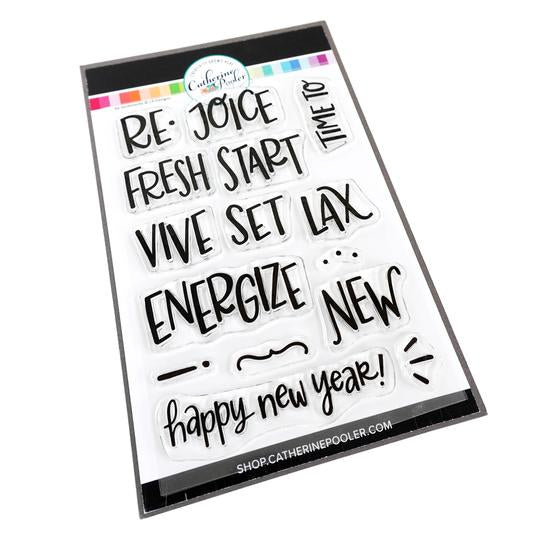 Catherine
Pooler
RE· JOICE
TIME TO
FRESH START
VIVE SET LAX
ENERGIZE NEW
happy new year!
SHOP.CATHERINEPOOLER.COM